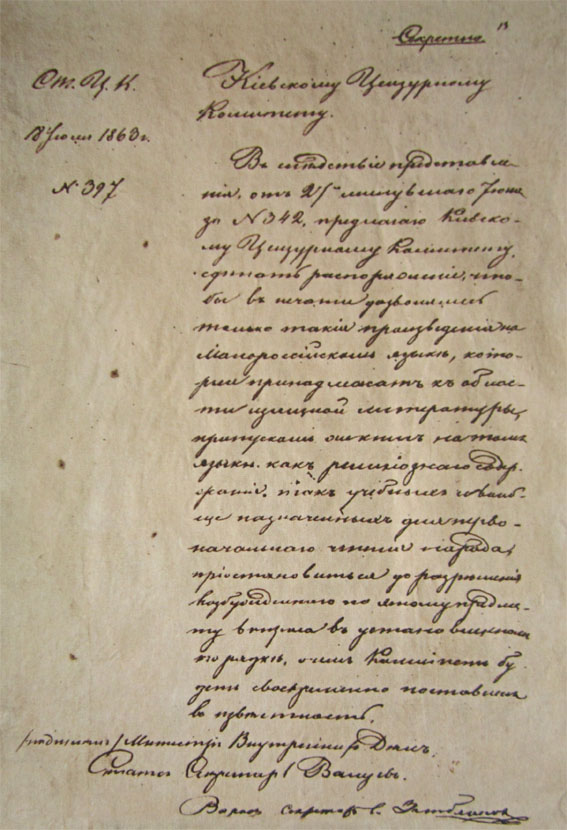 Секретно.
Ст. Ц. К.
Кіевскому Цензурному
Комитету.
18 Іюля 1863 г.
№ 397
Въ слѣдствіе представле-
нія, отъ 27го минувшаго Іюня
за № 342, предлагаю Кіевско-
му Цензурному Комитету,
сдѣлать распоряженіе, что-
бы въ печати дозволялись
только такія произведенія на
Малороссійскомъ языкѣ, кото-
рыя принадлежатъ къ облас-
ти изящной литературы,
пропускомъ же книгъ на томъ
языкѣ, какъ религіознаго содер-
жанія, такъ учебныхъ и вооб-
ще назначенныхъ для перво-
начальнаго чтенія народа,
пріостановиться до разрѣшенія
возбужденнаго по этому предме-
ту вопроса въ установленномъ
порядкѣ, о чемъ Комитетъ бу-
детъ своевременно поставленъ
въ извѣстность.
/подписалъ/ Министръ Внутреннихъ Дѣлъ,
Статсъ Секретарь Валуевъ.